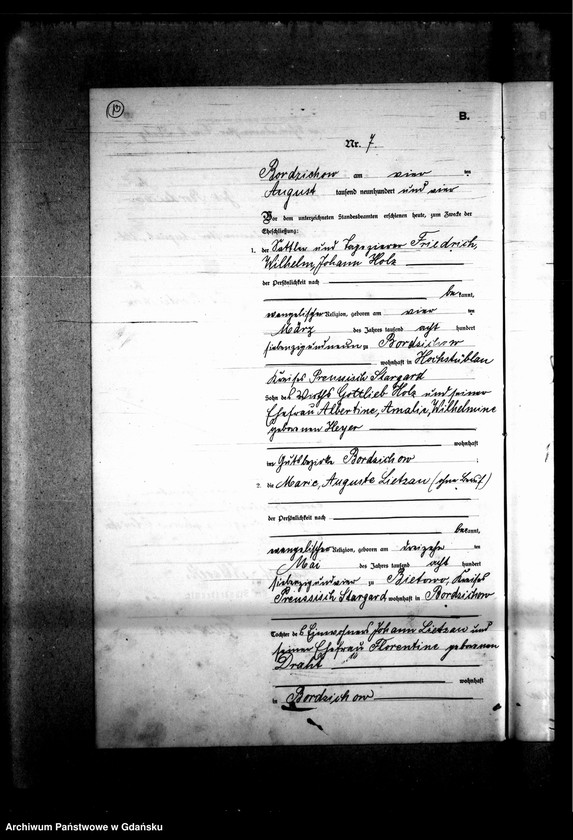 10
B.
Nr. 7
Bordzichow am vier ten
August tausend neunhundert und vier
Vor dem unterzeichneten Standesbeamten erschienen heute, zum Zwecke der
Eheschließung:
1. der Sattler und Tapezierer Friedrich,
Wilhelm, Johann Holz
der Persönlichkeit nach
bekannt,
evangelischer Religion, geboren am vier ten
März des Jahres tausend acht hundert
siebenzigundneun zu Bordzichow
wohnhaft in Hochstüblau
Kreises Preussisch Stargard
Sohn des Wirths Gottlieb Holz und seiner
Ehefrau Albertine, Amalie, Wilhelmine
geborenen Heyer
wohnhaft
im Gutsbezirke Bordzichow
2. die Marie, Auguste Lietzau (ohne Beruf)
der Persönlichkeit nach
bekannt,
evangelischer Religion, geboren am dreizehn ten
Mai des Jahres tausend acht hundert
siebenzigundvier zu Bietowo, Kreises
Preussisch Stargard, wohnhaft in Bordzichow
Tochter des Einwohners Johann Lietzau und
seiner Ehefrau Florentine geborenen
Draht
wohnhaft
in Bordzichow
Archiwum Państwowe w Gdańsku